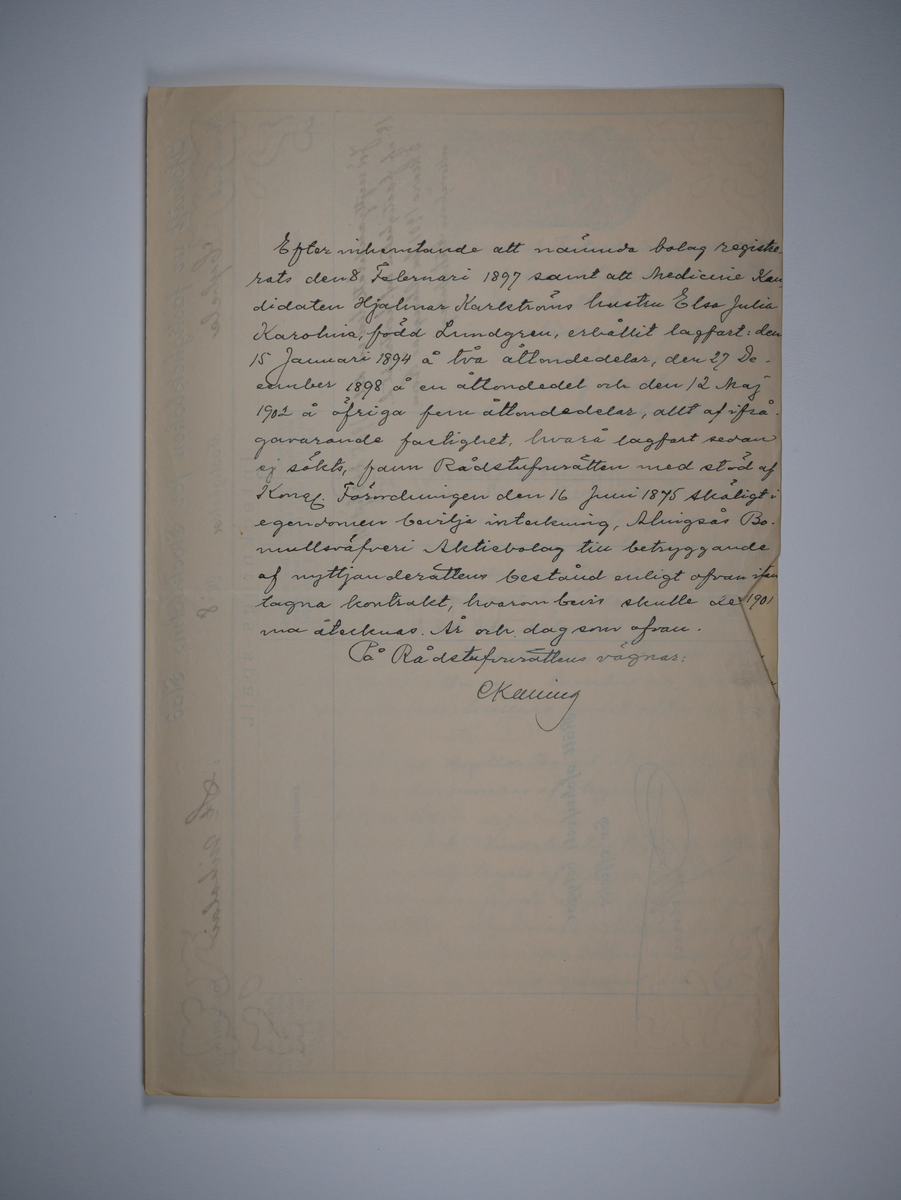 Efter inhemtande att nämnda bolag registre-
rats den 8 Februari 1897 samt att Medicine Kan
didaten Hjalmar Karlströms hustru Elsa Julia
Karolina, född Lundgren, erhållit lagfart: den
15 Januari 1894 å två åttondedelar, den 27 De-
cember 1898 å en åttondedel och den 12 Maj
1902 å öfriga fem åttondedelar, allt af ifrå-
gavarande fastighet, hvarå lagfart sedan
ej sökts, fann Rådstufvurätten med stöd af
Kongl. Förordningen den 16 Juni 1875 skäligt i
egendomen bevilja inteckning, Alingsås Bo-
mullsväfveri Aktiebolag till betryggande
af nyttjanderättens bestånd enligt ofvan
tagna kontrakt, hvarom bevis skulle 1901
ma åtecknas. År och dag som ofvan.
På Rådstufvurättens vägnar: